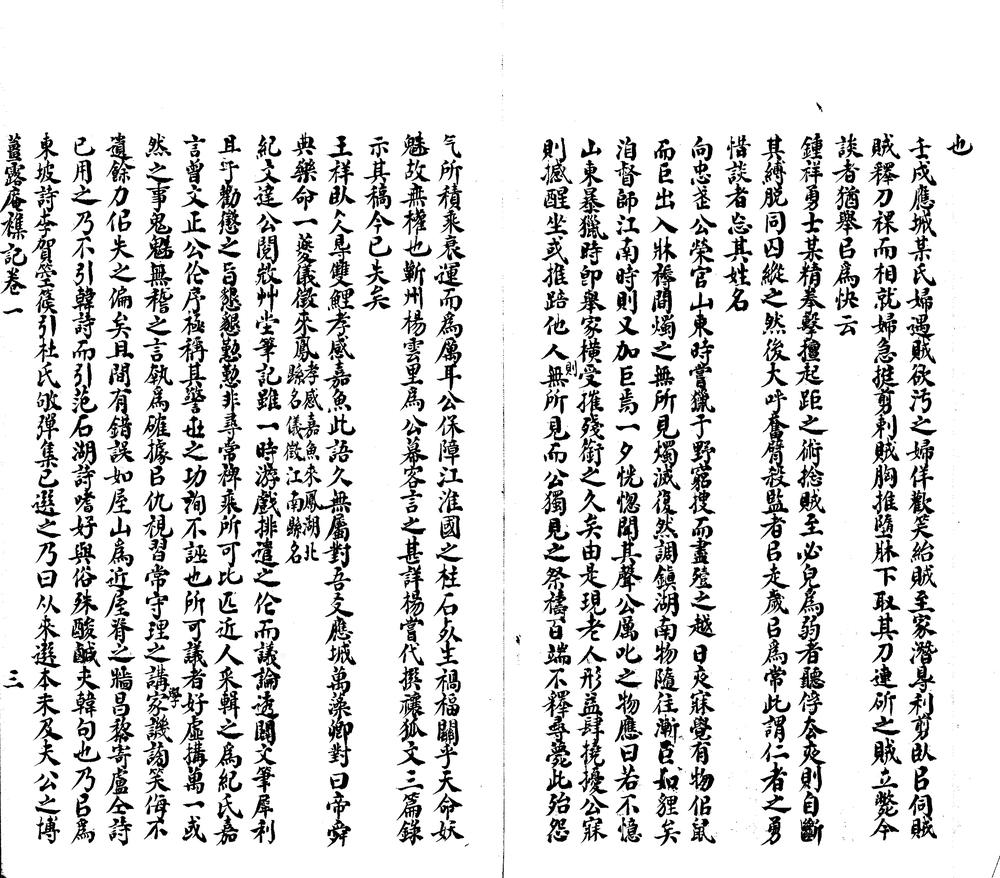 也
壬戌應城某氏婦遇賊欲污之婦佯歡笑紿賊至家潛具利剪臥㠯伺賊
賊釋刀裸而相就婦急挺剪刺賊胸推墮牀下取其刀連斫之賊立斃今
談者猶舉㠯為快云
鍾祥勇士某精拳擊擅起距之術捻賊至必兒為弱者聽俘夜則自斷
其縛脫同囚縱之然後大呼奮臂殺監者㠯走歲㠯為常此謂仁者之勇
惜談者忘其姓名
向忠武公榮官山東時嘗獵于野窮搜而盡殪之越日夜寐覺有物佀鼠
而巨出入牀褥間燭之無所見燭滅復然調鎮湖南物隨往漸巨如貍矣
洎督師江南時則又加巨焉一夕恍惚聞其聲公厲叱之物應曰若不憶
山東暴獵時卽舉家橫受摧殘銜之久矣由是現老人形益肆撓擾公寐
則撼醒坐或推踣他人則無所見而公獨見之祭禱百端不釋尋薨此殆怨
气所積乘衰運而為厲耳公保障江淮國之柱石死生禍福關乎天命妖
魅故無權也蘄州楊雲里為公幕客言之甚詳楊嘗代撰禳狐文三篇錄
示其稿今已失矣
王祥臥仌㝷雙鯉孝感嘉魚此語久無屬對吾友應城萬㴉卿對曰帝舜
典樂命一夔儀徵來鳳孝感嘉魚來鳳湖北縣名儀徵江南縣名
紀文達公閱微艸堂筆記雖一時游戲排遣之作而議論透闢文筆犀利
且於勸懲之旨懇懇懃懃非尋常稗乘所可比匹近人采輯之為紀氏嘉
言曾文正公作序極稱其警世之功洵不誣也所可議者好虛搆萬一或
然之事鬼魅無稽之言執為確據㠯仇視習常守理之講學家譏謿笑侮不
遺餘力佀失之偏矣且間有錯誤如屋山為近屋脊之牆昌黎寄盧仝詩
已用之乃不引韓詩而引范石湖詩嗜好與俗殊酸鹹夫韓句也乃㠯為
東坡詩李賀箜篌引杜氏敂彈集已選之乃曰从來選本未及夫公之博
薑露庵襍記卷一
三